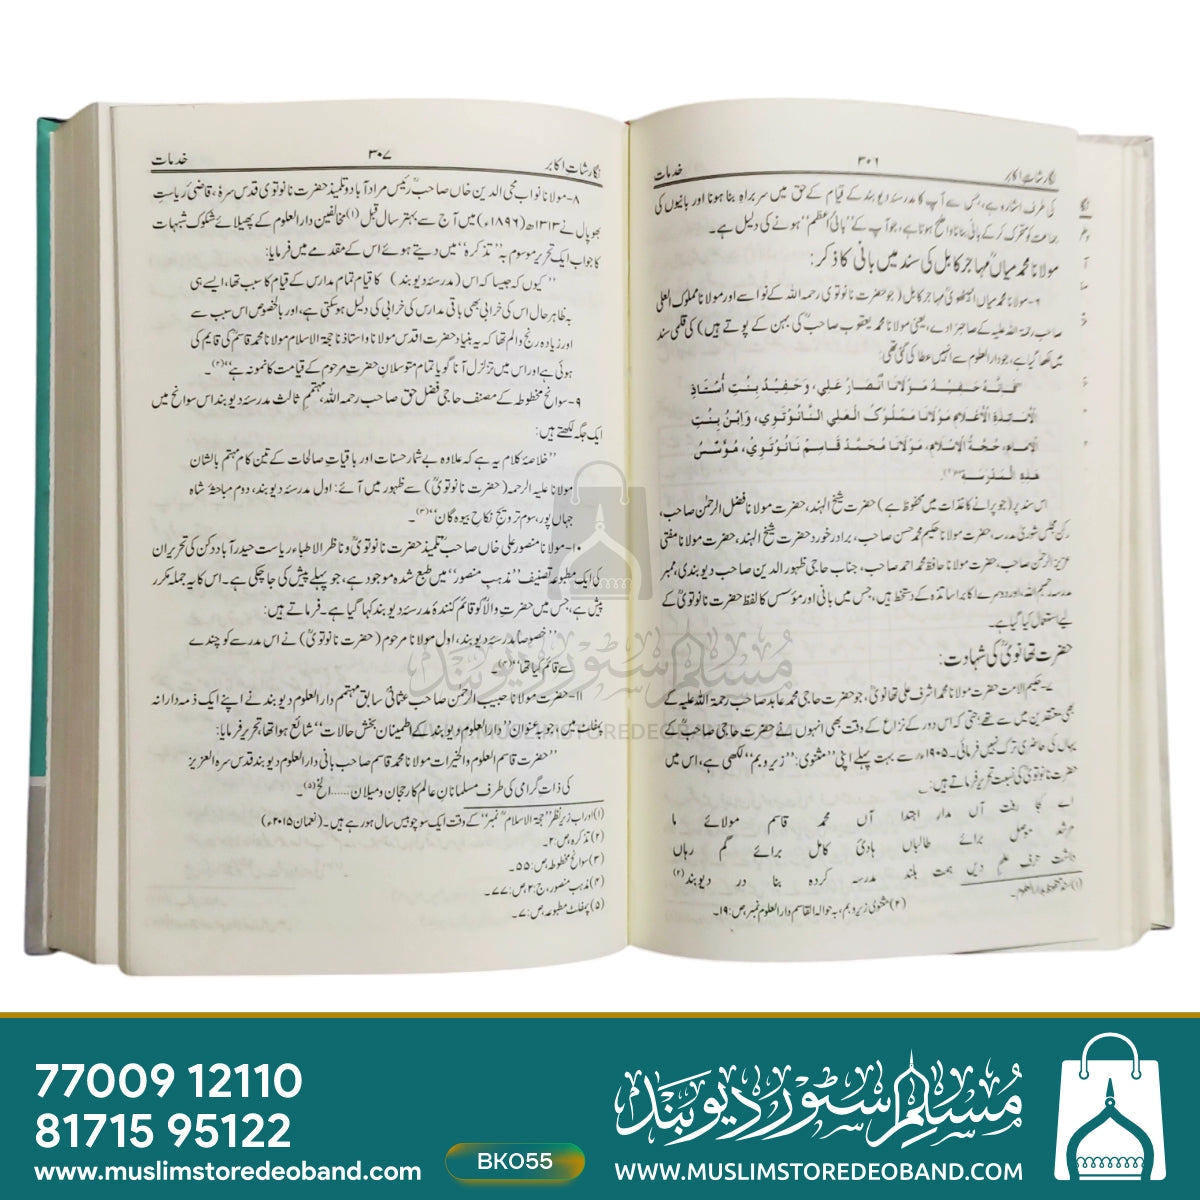 نگارشاتِ اکابر ۳۰۶ خدمات
کی طرف اشارہ ہے، جس سے آپ کا مدرسۂ دیوبند کے قیام کے حق میں سربراہِ بنا ہونا اور بانیوں کی
جماعت کو متحرک کر کے بانی بنانا واضح ہوتا ہے، جو آپ کے ’’بانیٔ اعظم‘‘ ہونے کی دلیل ہے۔
مولانا محمد میاںؒ مہاجر کابل کی سند میں بانی کا ذکر:
۶- مولانا محمد میاں انبیٹھویؒ مہاجر کابل (جو حضرت نانوتوی رحمہ اللہ کے نواسے اور مولانا مملوک العلی
صاحب رحمۃ اللہ علیہ کے صاحبزادے، یعنی مولانا محمد یعقوب صاحبؒ کی بہن کے پوتے ہیں) کی قلمی سند
میں لکھا گیا ہے، جو دارالعلوم سے انہیں عطا کی گئی تھی:
’’فَإِنَّهُ حَفِيدُ مَوْلَانَا أَنْصَارْ عَلِي، وَحَفِيدُ بِنْتِ أُسْتَاذِ
الْأَسَاتِذَةِ الْأَعْلَامِ مَوْلَانَا مَمْلُوْكُ الْعَلِي النَّانُوْتَوِي، وَابْنُ بِنْتِ
الْإِمَامِ، حُجَّةُ الْإِسْلَامِ، مَوْلَانَا مُحَمَّدْ قَاسِمْ نَانُوْتَوِيْ، مُؤَسِّسُ
هَذِهِ الْمَدْرَسَةِ‘‘(۱)
اس سند پر (جو پرانے کاغذات میں محفوظ ہے) حضرت شیخ الہند، حضرت مولانا فضل الرحمٰن صاحب،
رکن مجلس شوریٰ مدرسہ، حضرت مولانا حکیم محمد حسن صاحب، برادر خورد حضرت شیخ الہند، حضرت مولانا مفتی
عزیز الرحمٰن صاحب، حضرت مولانا حافظ محمد احمد صاحب، جناب حاجی ظہور الدین صاحب دیوبندی، ممبر
مدرسہ رحمہم اللہ اور دوسرے اکابر اساتذہ کے دستخط ہیں، جس میں بانی اور مؤسس کا لفظ حضرت نانوتویؒ کے
لیے استعمال کیا گیا ہے۔
حضرت تھانویؒ کی شہادت:
۷- حکیم الامت حضرت مولانا محمد اشرف علی تھانویؒ، جو حضرت حاجی محمد عابد صاحب رحمۃ اللہ علیہ کے
بھی معتقدین میں سے تھے، حتیٰ کہ اس دور کے نزاع کے وقت بھی انہوں نے حضرت حاجی صاحبؒ کے
یہاں کی حاضری ترک نہیں فرمائی۔ ۱۹۰۵ء سے بہت پہلے اپنی ’’مثنوی: زیر و بم‘‘ لکھی ہے، اس میں
حضرت نانوتوی کی نسبت تحریر فرماتے ہیں:۔
اے کجا رفت آں مدار اجتدا آں محمد قاسم مولائے ما
مرشد موصل برائے طالباں ہادیٔ کامل برائے گم رہاں
داشت حرفِ علم دیں ہمت بلند مدرسہ کردہ بنا در دیوبند(۲)
(۱) سند مہتمم دارالعلوم۔
(۲) مثنوی زیر و بم، بہ حوالہ القاسم دارالعلوم نمبر، ص: ۱۹۔
نگارشاتِ اکابر ۳۰۷ خدمات
۸- مولانا نواب محی الدین خاں صاحبؒ رئیس مراد آباد و تلمیذ حضرت نانوتوی قدس سرہٗ، قاضیٔ ریاستِ
بھوپال نے ۱۳۱۳ھ (۱۸۹۶ء) میں آج سے بہتر سال قبل(۱) مخالفین دارالعلوم کے پھیلائے شکوک شبہات
کا جواب ایک تحریر موسوم بہ ’’تذکرہ‘‘ میں دیتے ہوئے اس کے مقدمے میں فرمایا:
’’کیوں کہ جیسا کہ اس (مدرسۂ دیوبند) کا قیام تمام مدارس کے قیام کا سبب تھا، ایسے ہی
بہ ظاہر حال اس کی خرابی بھی باقی مدارس کی خرابی کی دلیل ہوسکتی ہے، اور بالخصوص اس سبب سے
اور زیادہ رنج و الم تھا کہ یہ بنیاد حضرت اقدس مولانا و استاذنا حجۃ الاسلام مولانا محمد قاسمؒ کی قایم کی
ہوئی ہے اور اس میں تزلزل آنا گویا تمام متوسلانِ حضرتِ مرحوم کے قیامت کا نمونہ ہے‘‘(۲)۔
۹- سوانح مخطوطہ کے مصنف حاجی فضل حق صاحب رحمہ اللہ، مہتمم ثالث مدرسۂ دیوبند اس سوانح میں
ایک جگہ لکھتے ہیں:
’’خلاصۂ کلام یہ ہے کہ علاوہ بے شمار حسنات اور باقیاتِ صالحات کے تین کام مہتم بالشان
مولانا علیہ الرحمہ (حضرت نانوتویؒ) سے ظہور میں آئے: اول مدرسۂ دیوبند، دوم مباحثۂ شاہ
جہاں پور، سوم ترویجِ نکاحِ بیوہ گان‘‘(۳)۔
۱۰- مولانا منصور علی خاں صاحبؒ تلمیذ حضرت نانوتویؒ و ناظر الاطباء ریاست حیدرآباد دکن کی تحریران
کی ایک مطبوعہ تصنیف ’’مذہب منصور‘‘ میں طبع شدہ موجود ہے، جو پہلے پیش کی جاچکی ہے۔ اس کا یہ جملہ مکرر
پیش ہے، جس میں حضرتِ والاؒ کو قائم کنندۂ مدرسۂ دیوبند کہا گیا ہے۔ فرماتے ہیں:
’’خصوصاً مدرسۂ دیوبند، اول مولانا مرحوم (حضرت نانوتویؒ) نے اس مدرسے کو چندے
سے قائم کیا تھا‘‘(۴)
۱۱- حضرت مولانا حبیب الرحمٰن صاحب عثمانیؒ سابق مہتمم دارالعلوم دیوبند نے اپنے ایک ذمہ دارانہ
پمفلٹ میں، جو بہ عنوان ’’دارالعلوم دیوبند کے اطمینان بخش حالات‘‘ شائع ہوا تھا، تحریر فرمایا:
’’حضرت قاسم العلوم والخیرات مولانا محمد قاسم صاحب بانی دارالعلوم دیوبند قدس سرہ العزیز
کی ذات گرامی کی طرف مسلمانانِ عالم کا رجحان و میلان……الخ(۵)۔
(۱) اور اب زیر نظر ’’حجۃ الاسلامؒ نمبر‘‘ کے وقت ایک سو چوبیس سال ہو رہے ہیں۔ (نعمان ۲۰۱۵ء)
(۲) تذکرہ، ص: ۲۔
(۳) سوانح مخطوطہ، ص: ۵۵۔
(۴) مذہب منصور، ج: ۲، ص: ۷۷۔
(۵) پمفلٹ مطبوعہ، ص: ۷۔
مسلم سٹور دیوبند
WWW.MUSLIMSTOREDEOBAND.COM
77009 12110
81715 95122
www.muslimstoredeoband.com
BK055
مسلم سٹور دیوبند
WWW.MUSLIMSTOREDEOBAND.COM